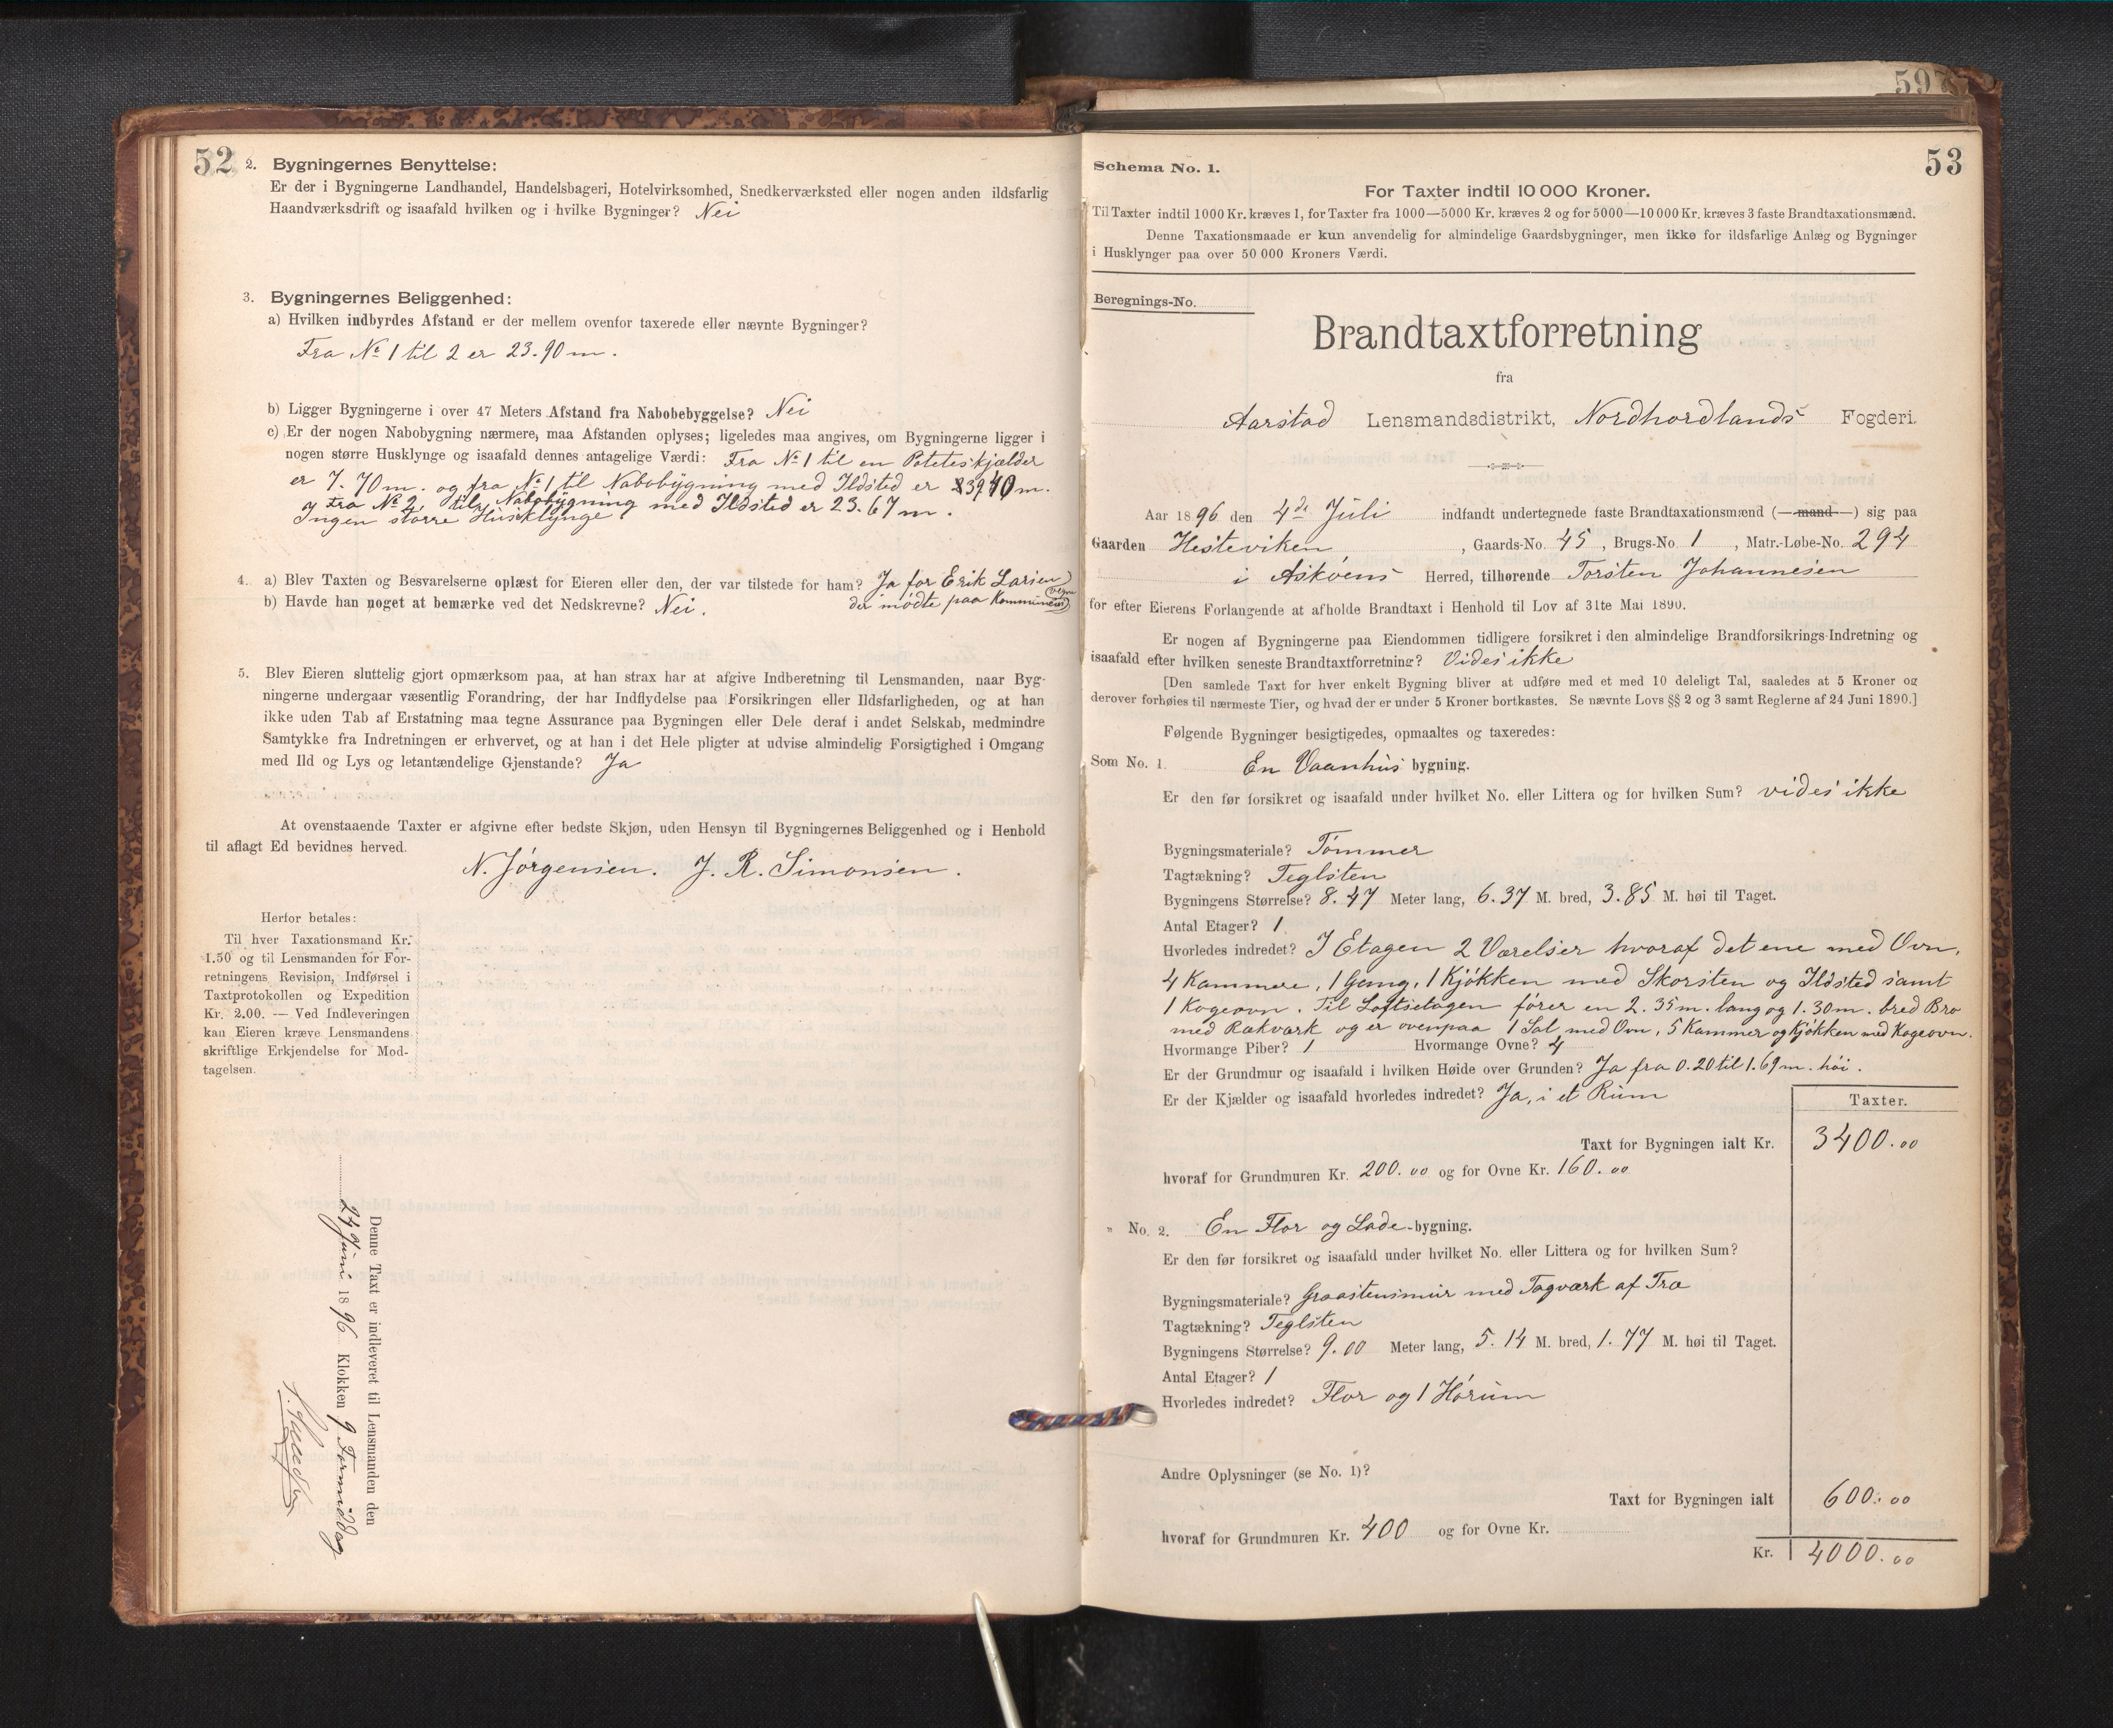 52
2. Bygningernes Benyttelse:
Er der i Bygningerne Landhandel, Handelsbageri, Hotelvirksomhed, Snedkerværksted eller nogen anden ildsfarlig
Haandværksdrift og isaafald hvilken og i hvilke Bygninger? Nei
3. Bygningernes Beliggenhed:
a) Hvilken indbyrdes Afstand er der mellem ovenfor taxerede eller nævnte Bygninger?
Fra No 1 til 2 er 23.90 m.
b) Ligger Bygningerne i over 47 Meters Afstand fra Nabobebyggelse? Nei
c) Er der nogen Nabobygning nærmere, maa Afstanden oplyses; ligeledes maa angives, om Bygningerne ligger i
nogen større Husklynge og isaafald dennes antagelige Værdi: Fra No 1 til en Poteteskjælder
er 7.70 m. og fra No 1 til Nabobygning med Ildsted er 39.40 m.
og Fra No 2 til Nabobygning med Ildsted er 23.67 m.
Ingen større Husklynge
4. a) Blev Taxten og Besvarelserne oplæst for Eieren eller den, der var tilstede for ham? Ja for Erik Larsen
der mødte paa Kommunens Vegne
b) Havde han noget at bemærke ved det Nedskrevne? Nei.
5. Blev Eieren sluttelig gjort opmærksom paa, at han strax har at afgive Indberetning til Lensmanden, naar Byg-
ningerne undergaar væsentlig Forandring, der har Indflydelse paa Forsikringen eller Ildsfarligheden, og at han
ikke uden Tab af Erstatning maa tegne Assurance paa Bygningen eller Dele deraf i andet Selskab, medmindre
Samtykke fra Indretningen er erhvervet, og at han i det Hele pligter at udvise almindelig Forsigtighed i Omgang
med Ild og Lys og letantændelige Gjenstande? Ja
At ovenstaaende Taxter er afgivne efter bedste Skjøn, uden Hensyn til Bygningernes Beliggenhed og i Henhold
til aflagt Ed bevidnes herved.
N. Jørgensen. J. R. Simonsen.
Herfor betales:
Til hver Taxationsmand Kr.
1.50 og til Lensmanden for For-
retningens Revision, Indførsel i
Taxtprotokollen og Expedition
Kr. 2.00. — Ved Indleveringen
kan Eieren kræve Lensmandens
skriftlige Erkjendelse for Mod-
tagelsen.
Denne Taxt er indleveret til Lensmanden den
24 Juni 1896 Klokken 9 Formiddag
597
53
Schema No. 1.
For Taxter indtil 10 000 Kroner.
Til Taxter indtil 1000 Kr. kræves 1, for Taxter fra 1000—5000 Kr. kræves 2 og for 5000—10 000 Kr. kræves 3 faste Brandtaxationsmænd.
Denne Taxationsmaade er kun anvendelig for almindelige Gaardsbygninger, men ikke for ildsfarlige Anlæg og Bygninger
i Husklynger paa over 50 000 Kroners Værdi.
Beregnings-No.
Brandtaxtforretning
fra
Aarstad Lensmandsdistrikt, Nordhordlands Fogderi.
Aar 1896 den 4de Juli indfandt undertegnede faste Brandtaxationsmænd (—mand—) sig paa
Gaarden Hesteviken, Gaards-No. 45, Brugs-No 1, Matr.-Løbe-No. 294
i Askøens Herred, tilhørende Torsten Johannesen
for efter Eierens Forlangende at afholde Brandtaxt i Henhold til Lov af 31te Mai 1890.
Er nogen af Bygningerne paa Eiendommen tidligere forsikret i den almindelige Brandforsikrings-Indretning og
isaafald efter hvilken seneste Brandtaxtforretning? Vides ikke
[Den samlede Taxt for hver enkelt Bygning bliver at udføre med et med 10 deleligt Tal, saaledes at 5 Kroner og
derover forhøies til nærmeste Tier, og hvad der er under 5 Kroner bortkastes. Se nævnte Lovs §§ 2 og 3 samt Reglerne af 24 Juni 1890.]
Følgende Bygninger besigtigedes, opmaaltes og taxeredes:
Som No. 1. En Vaanhus bygning.
Er den før forsikret og isaafald under hvilket No. eller Littera og for hvilken Sum? vides ikke
Bygningsmateriale? Tømmer
Tagtækning? Teglsten
Bygningens Størrelse? 8.47 Meter lang, 6.37 M. bred, 3.85 M. høi til Taget.
Antal Etager? 1
Hvorledes indredet? I Etagen 2 Værelser hvoraf det ene med Ovn,
4 Kammere, 1 Gang, 1 Kjøkken med Skorsten og Ildsted samt
1 Kogeovn. Til Loftsetagen fører en 2.35 m. lang og 1.30 m. bred Bro
med Rækværk og er ovenpaa 1 Sal med Ovn, 5 Kammer og Kjøkken med Kogeovn.
Hvormange Piber? 1 Hvormange Ovne? 4
Er der Grundmur og isaafald i hvilken Høide over Grunden? Ja fra 0.20 til 1.69 m. høi.
Er der Kjælder og isaafald hvorledes indredet? Ja, i et Rum
Taxter.
Taxt for Bygningen ialt Kr. 3400.00
hvoraf for Grundmuren Kr. 200.00 og for Ovne Kr. 160.00
" No. 2. En Flor og Lade-bygning.
Er den før forsikret og isaafald under hvilket No. eller Littera og for hvilken Sum?
Bygningsmateriale? Graastensmur med Tagværk af Træ
Tagtækning? Teglsten
Bygningens Størrelse? 9.00 Meter lang, 5.14 M. bred, 1.77 M. høi til Taget.
Antal Etager? 1
Hvorledes indredet? Flor og 1 Hørum
Andre Oplysninger (se No. 1)?
Taxt for Bygningen ialt 600.00
hvoraf for Grundmuren Kr. 400 og for Ovne Kr.
Kr. 4000.00